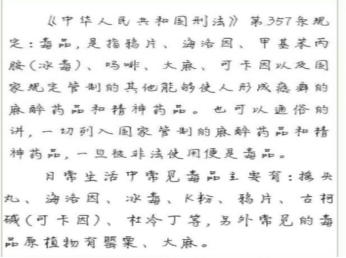 《中华人民共和国刑法》第357条规
定:毒品,是指鸦片、海洛因、甲基苯丙
胺(冰毒)、吗啡、大麻、可卡因以及国
家规定管制的其他能够使人形成瘾癖的
麻醉药品和精神药品。也可以通俗的
讲,一切列入国家管制的麻醉药品和精
神药品,一旦被非法使用便是毒品。
日常生活中常见毒品主要有:摇头
丸、海洛因、冰毒、K粉、鸦片、古柯
碱(可卡因)、杜冷丁等,另外常见的毒
品原植物有罂粟、大麻。